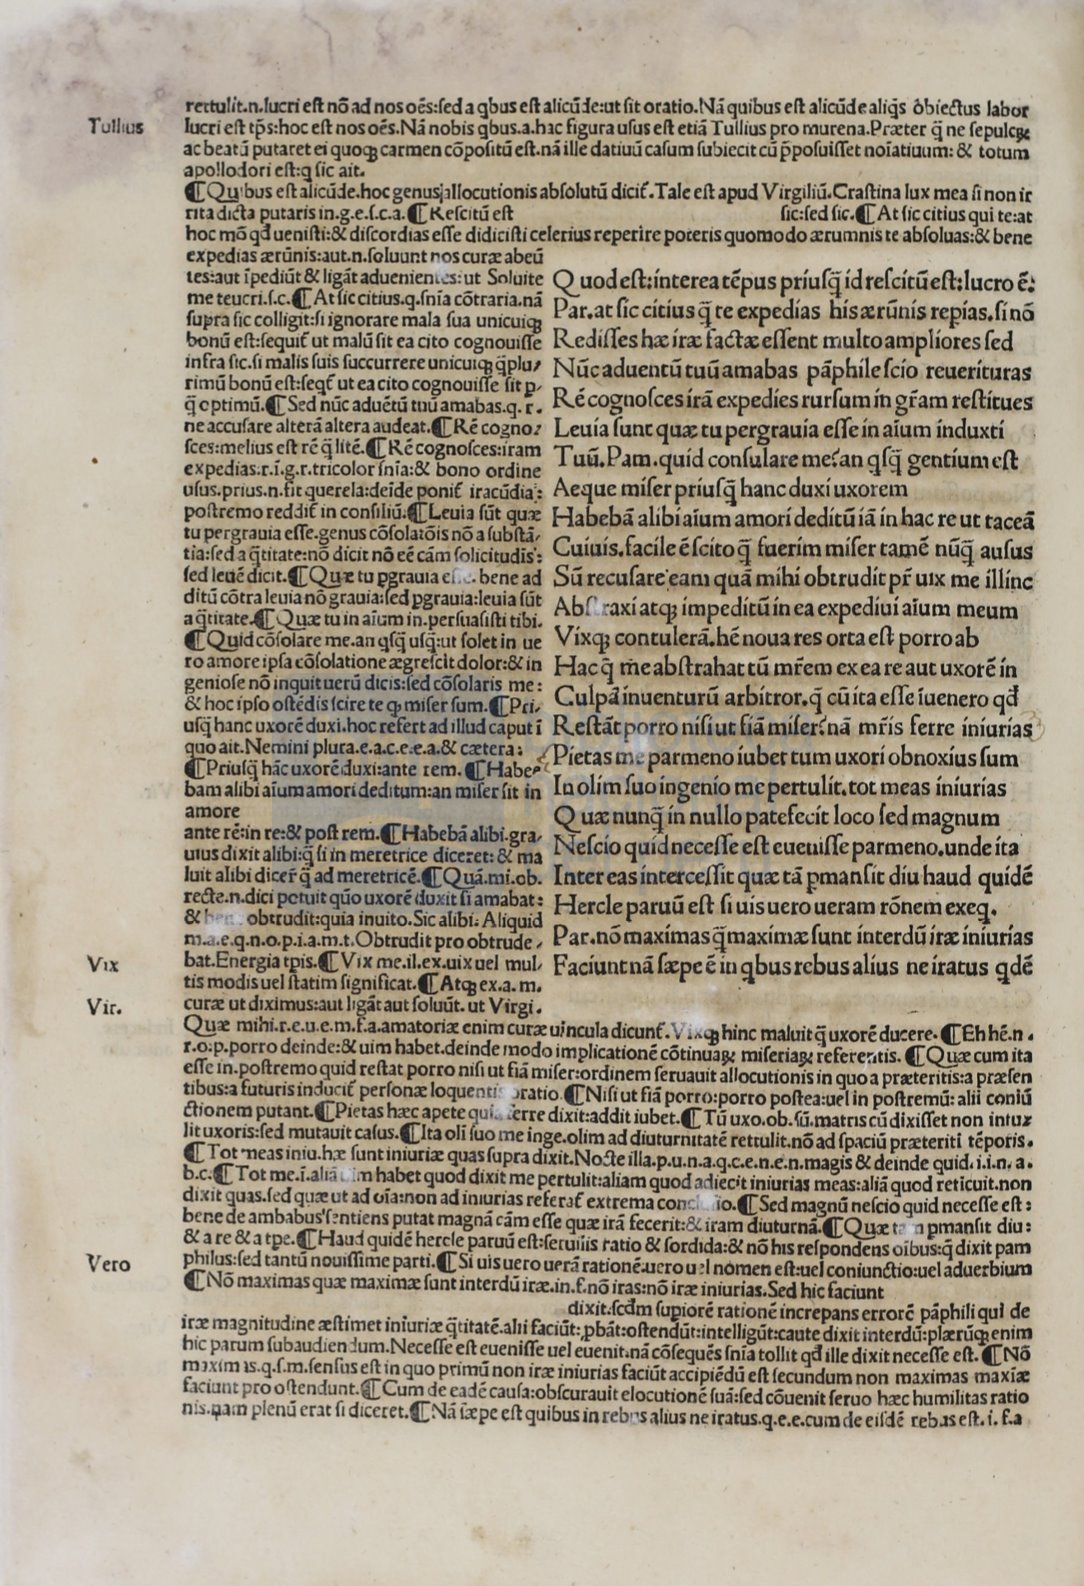 rettulit.n.lucri eſt nõ ad nos oẽs:ſed a qbus eſt alicũde:ut ſit oratio.Nã quibus eſt alicũde aliqs obiectus labor
Tullius
lucri eſt tp̃s:hoc eſt nos oẽs.Nã nobis qbus.a.hac figura uſus eſt etiã Tullius pro murena.Præter q̃ ne ſepulcꝝ
ac beatũ putaret ei quoqꝫ carmen cõpoſitũ eſt.nã ille datiuũ caſum ſubiecit cũ p̃poſuiſſet noĩatiuum: & totum
apollodori eſt:q ſic ait.
¶Quibus eſt alicũde.hoc genus allocutionis abſolutũ dicit̃. Tale eſt apud Virgiliũ.Craſtina lux mea ſi non ir
rita dicta putaris in.g.e.ſ.c.a.¶Reſcitũ eſt ſic:ſed ſic.¶At ſic citius qui te:at
hoc mõ qđ ueniſti:& diſcordias eſſe didiciſti celerius reperire poteris quomodo ærumnis te abſoluas:& bene
expedias ærũnis:aut.n.ſoluunt nos curæ abeũ
tes:aut ĩpediũt & ligãt aduenientes:ut Soluite
me teucri.ſ.c.¶At ſic citius.q.ſnĩa cõtraria.nã
ſupra ſic colligit:ſi ignorare mala ſua unicuiqꝫ
bonũ eſt:ſequit̃ ut malũ ſit ea cito cognouiſſe
infra ſic.ſi malis ſuis ſuccurrere unicuiqꝫ q̃plu/
rimũ bonũ eſt:ſeqt̃ ut ea cito cognouiſſe ſit p/
q̃ optimũ.¶Sed nũc aduẽtũ tuũ amabas.q. r̃.
ne accuſare alterã altera audeat.¶Rẽ cogno/
ſces:melius eſt rẽ q̃ litẽ.¶Rẽ cognoſces:iram
expedias:r.ĩ.g.r.tricolor ſnĩa:& bono ordine
uſus.prius.n.fit querela:deĩde ponit̃ iracũdia:
poſtremo reddit̃ in conſiliũ.¶Leuia ſũt quæ
tu pergrauia eſſe.genus cõſolatõis nõ a ſubſtã/
tia:ſed a q̃titate:nõ dicit nõ eẽ cãm ſolicitudis:
ſed leuẽ dicit.¶Quæ tu pgrauia bene ad
ditũ cõtra leuia nõ grauia:ſed pgrauia:leuia ſũt
a q̃titate.¶Quæ tu in aĩum in.perſuaſiſti tibi.
¶Quid cõſolare me.an qſq̃ uſq̃:ut ſolet in ue
ro amore ipſa cõſolatione ægreſcit dolor:& in
genioſe nõ inquit uerũ dicis:ſed cõſolaris me:
& hoc ipſo oſtẽdis ſcire te qꝫ miſer ſum.¶Pri/
uſq̃ hanc uxorẽ duxi.hoc refert ad illud caput ĩ
quo ait.Nemini plura.e.a.c.e.e.a.& cætera:
¶Priuſq̃ hãc uxorẽ duxi:ante rem. ¶Habe/
bam alibi aĩum amori deditum:an miſer ſit in
amore
ante rẽ:in re:& poſt rem.¶Habebã alibi.gra/
uius dixit alibi:q̃ ſi in meretrice diceret: & ma
luit alibi dicer̃ q̃ ad meretricẽ.¶Quã.mi.ob.
recte.n.dici potuit qũo uxorẽ duxit ſi amabat:
& obtrudit:quia inuito.Sic alibi: Aliquid
m.a.e.q.n.o.p.i.a.m.t.Obtrudit pro obtrude/
Vix
bat.Energia tpis.¶Vix me.il.ex.uix uel mul/
tis modis uel ſtatim ſignificat.¶Atqꝫ ex.a.m.
Vir.
curæ ut diximus:aut ligãt aut ſoluũt.ut Virgi.
Quod eſt:interea tẽpus priuſq̃ id reſcitũ eſt:lucro ẽ:
Par.at ſic citius q̃ te expedias his ærũnis repias.ſi nõ
Rediſſes hæ iræ factæ eſſent multo ampliores ſed
Nũc aduentũ tuũ amabas pãphile ſcio reuerituras
Rẽ cognoſces irã expedies rurſum in gr̃am reſtitues
Leuia ſunt quæ tu pergrauia eſſe in aĩum induxti
Tuũ.Pam.quid conſulare me?an qſq̃ gentium eſt
Aeque miſer priuſq̃ hanc duxi uxorem
Habebã alibi aĩum amori deditũ iã in hac re ut taceã
Cuiuis.facile ẽ ſcito q̃ fuerim miſer tamẽ nũq̃ auſus
Sũ recuſare eam quã mihi obtrudit pr̃ uix me illinc
Abſtraxi atqꝫ impeditũ in ea expediui aĩum meum
Vixqꝫ contulerã.hẽ noua res orta eſt porro ab
Hac q̃ me abſtrahat tũ mr̃em ex ea re aut uxorẽ in
Culpã inuenturũ arbitror.q̃ cũ ita eſſe iuenero qđ
Reſtãt porro niſi ut fiã miſer?nã mr̃is ferre iniurias
Pietas me parmeno iubet tum uxori obnoxius ſum
In olim ſuo ingenio me pertulit.tot meas iniurias
Quæ nunq̃ in nullo patefecit loco ſed magnum
Neſcio quid neceſſe eſt eueniſſe parmeno.unde ita
Inter eas interceſſit quæ tã pmanſit diu haud quidẽ
Hercle paruũ eſt ſi uis uero ueram rõnem exeq.
Par.nõ maximas q̃ maximæ ſunt interdũ iræ iniurias
Faciunt nã ſæpe ẽ in qbus rebus alius ne iratus qdẽ
Quæ mihi.r.e.u.e.m.f.a.amatoriæ enim curæ uincula dicunt̃.Vixqꝫ hinc maluit q̃ uxorẽ ducere.¶Eh hẽ.n.
r.o:p.porro deinde:& uim habet.deinde modo implicationẽ cõtinuaꝝ miſeriaꝝ referentis. ¶Quæ cum ita
eſſe in.poſtremo quid reſtat porro niſi ut fiã miſer:ordinem ſeruauit allocutionis in quo a præteritis:a præſen
tibus:a futuris inducit̃ perſonæ loquentis oratio.¶Niſi ut fiã porro:porro poſtea:uel in poſtremũ: alii coniũ
ctionem putant.¶Pietas hæc apete quia ferre dixit:addit iubet.¶Tũ uxo.ob.ſũ.matris cũ dixiſſet non intu/
lit uxoris:ſed mutauit caſus.¶Ita oli ſuo me inge.olim ad diuturnitatẽ rettulit.nõ ad ſpaciũ præteriti tẽporis.
¶Tot meas iniu.hæ ſunt iniuriæ quas ſupra dixit.Nocte illa.p.u.n.a.q.c.e.n.e.n.magis & deinde quid.i.i.n.a.
b.c.¶Tot me.ĩ.aliã uim habet quod dixit me pertulit:aliam quod adiecit iniurias meas:aliã quod reticuit.non
dixit quas.ſed quæ ut ad oĩa:non ad iniurias referat̃ extrema concluſio.¶Sed magnũ neſcio quid neceſſe eſt:
bene de ambabus ſentiens putat magnã cãm eſſe quæ irã fecerit:& iram diuturnã.¶Quæ tam pmanſit diu:
& a re & a tpe.¶Haud quidẽ hercle paruũ eſt:ſeruilis ratio & ſordida:& nõ his reſpondens oĩbus:q̃ dixit pam
Vero
philus:ſed tantũ nouiſſime parti.¶Si uis uero uerã rationẽ.uero uel nomen eſt:uel coniunctio:uel aduerbium
¶Nõ maximas quæ maximæ ſunt interdũ iræ.in.f.nõ iras:nõ iræ iniurias.Sed hic faciunt
dixit.ſcđm ſupiorẽ rationẽ increpans errorẽ pãphili qui de
iræ magnitudine æſtimet iniuriæ q̃titatẽ.alii faciũt:pbãt:oſtendũt:intelligũt:caute dixit interdũ:plærũqꝫ enim
hic parum ſubaudiendum.Neceſſe eſt eueniſſe uel euenit.nã cõſequẽs ſnĩa tollit qđ ille dixit neceſſe eſt.¶Nõ
maximas.q.ſ.m.ſenſus eſt in quo primũ non iræ iniurias faciũt accipiẽdũ eſt ſecundum non maximas maxĩæ
faciunt pro oſtendunt.¶Cum de eadẽ cauſa:obſcurauit elocutionẽ ſuã:ſed cõuenit ſeruo hæc humilitas ratio
nis.nam plenũ erat ſi diceret.¶Nã ſæpe eſt quibus in rebus alius ne iratus.q.e.e.cum de eiſdẽ rebus eſt.i.f.a